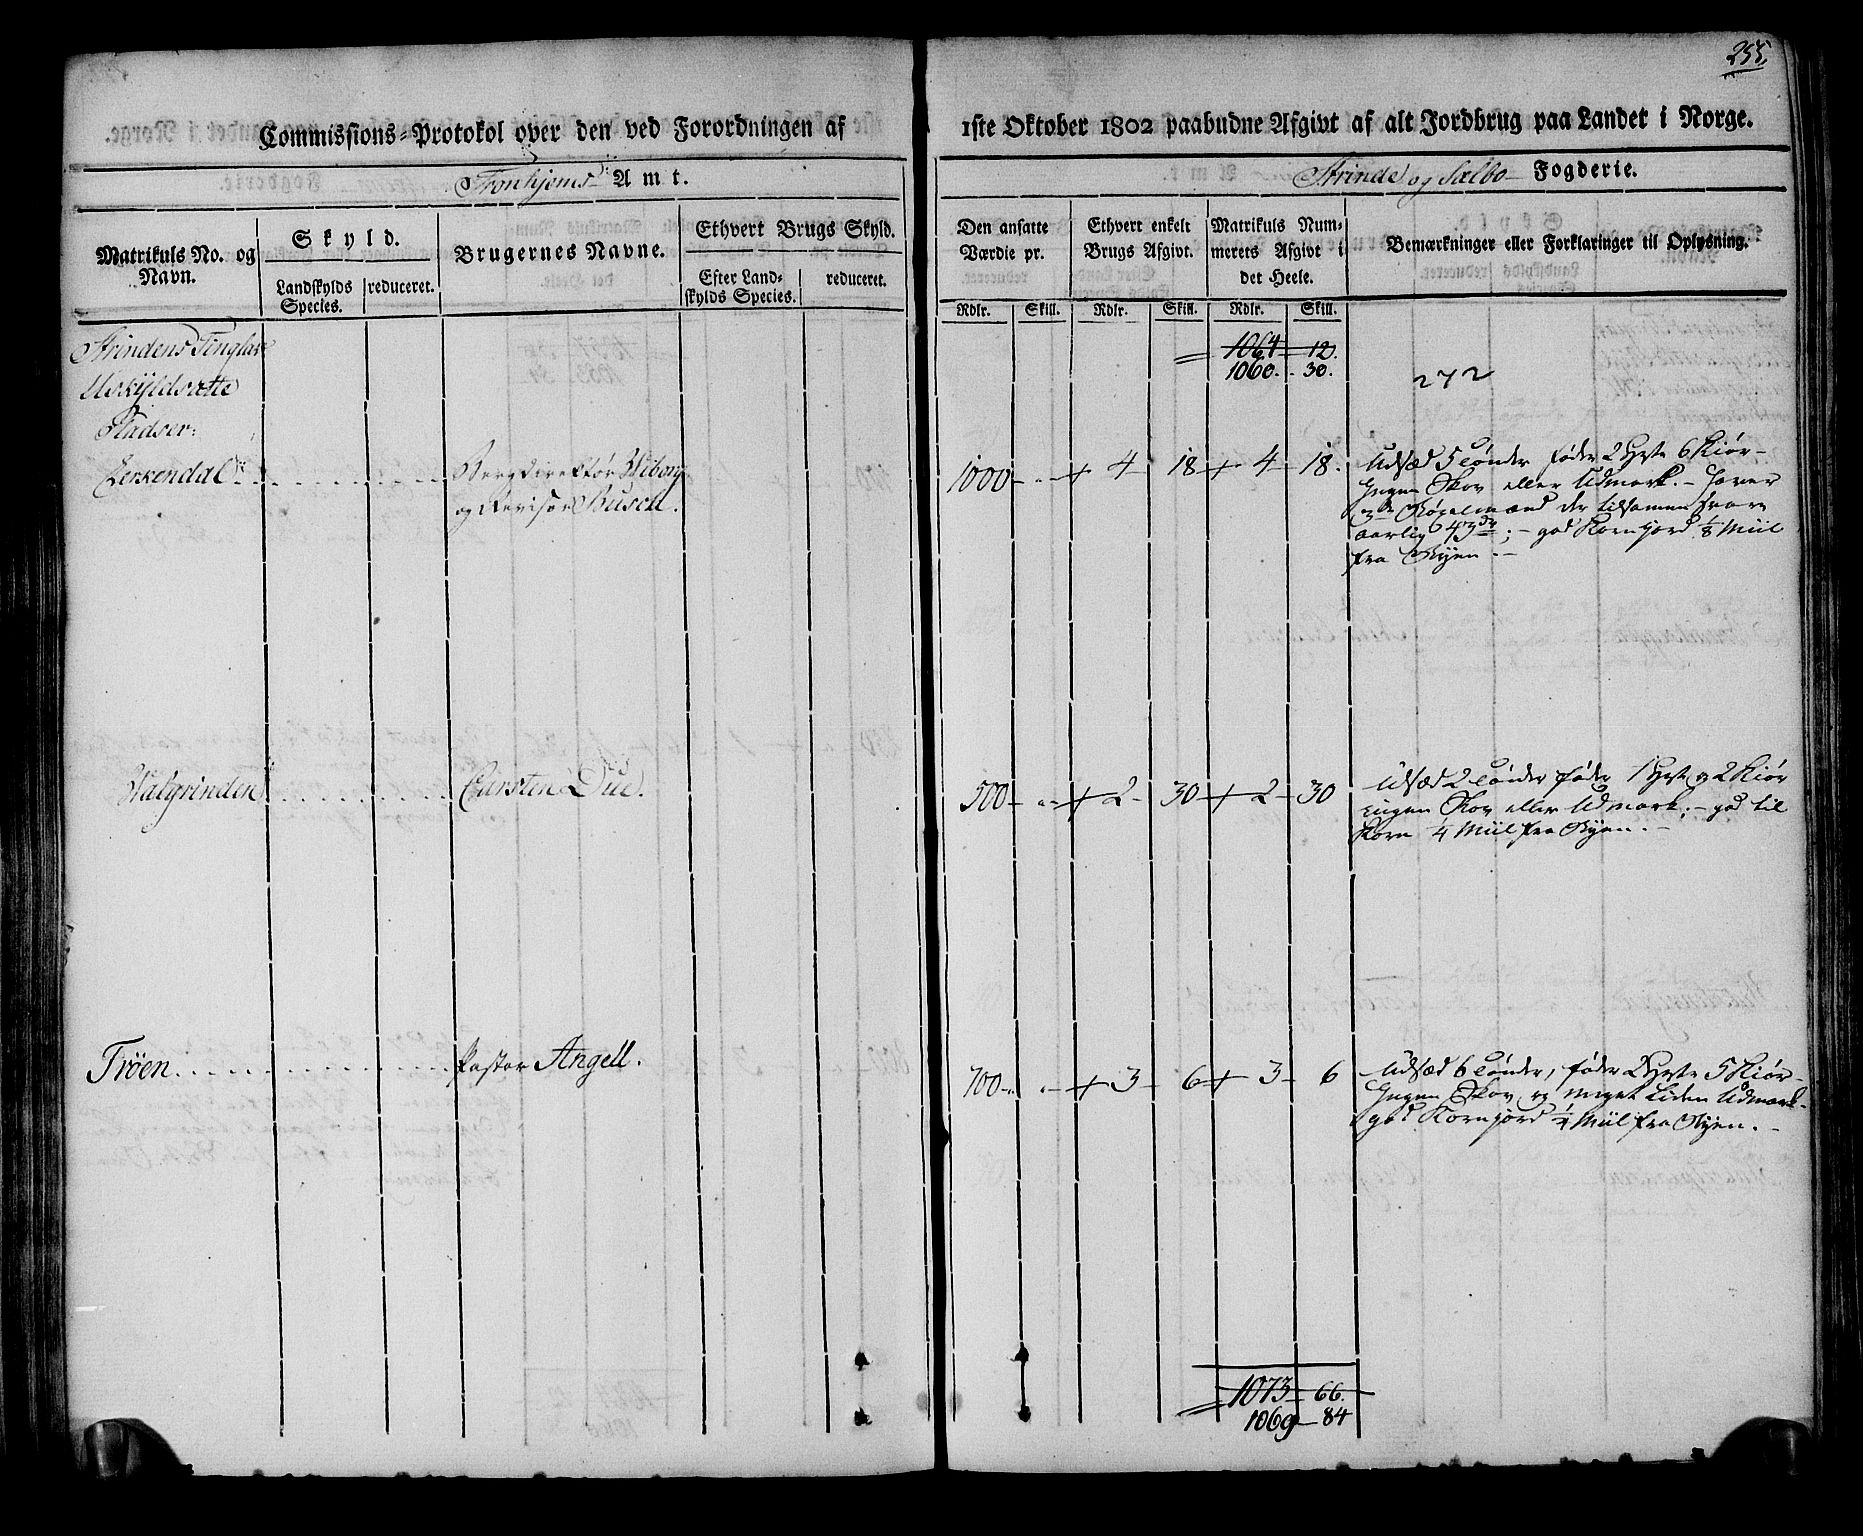 255.
Commissions-Protokol over den ved Forordningen af
1ste Oktober 1802 paabudne Afgivt af alt Jordbrug paa Landet i Norge.
Tronhjems Amt.
Strinde og Sælbo Fogderie.
Matrikuls No. og Navn.
Skyld.
Landskylds Species.
reduceret.
Brugernes Navne.
Ethvert Brugs Skyld.
Efter Landskylds Species.
reduceret.
Den ansatte Værdie pr.
Ethvert enkelt Brugs Afgivt.
Matrikuls Nummerets Afgivt i det Heele.
Bemærkninger eller Forklaringer til Oplysning.
Rdlr. Skill. Rdlr. Skill. Rdlr. Skill.
Strindens Tinglav
1064 - 12.
Uskyldsatte
1060. - 30.
272
Pladser:
Lerkendal
Bergdirektør Wiborg
og Revisor Busch.
1000 - 4 18 4 18.
Udsæd 5 Tønder føder 2 Heste 6 Kiør -
Ingen Skov eller Udmark. -
aarlig 43; - god Kornjord 1/8 Miil
fra Byen. -
Valgrinden
Carsten Due.
500 - 2 - 30 2 - 30
Udsæd 2 Tønder føder 1 Hest og 2 Kiør
ingen Skov eller Udmark; - god til
Korn 1/4 Miil fra Byen. -
Trøen
Pastor Angell.
700 - 3 - 6 3 - 6
Udsæd 6 Tønder, føder 2 Heste 5 Kiør -
Ingen Skov og meget liden Udmark -
god Kornjord 1/4 Miil fra Byen. -
1073 - 66.
1069 - 84